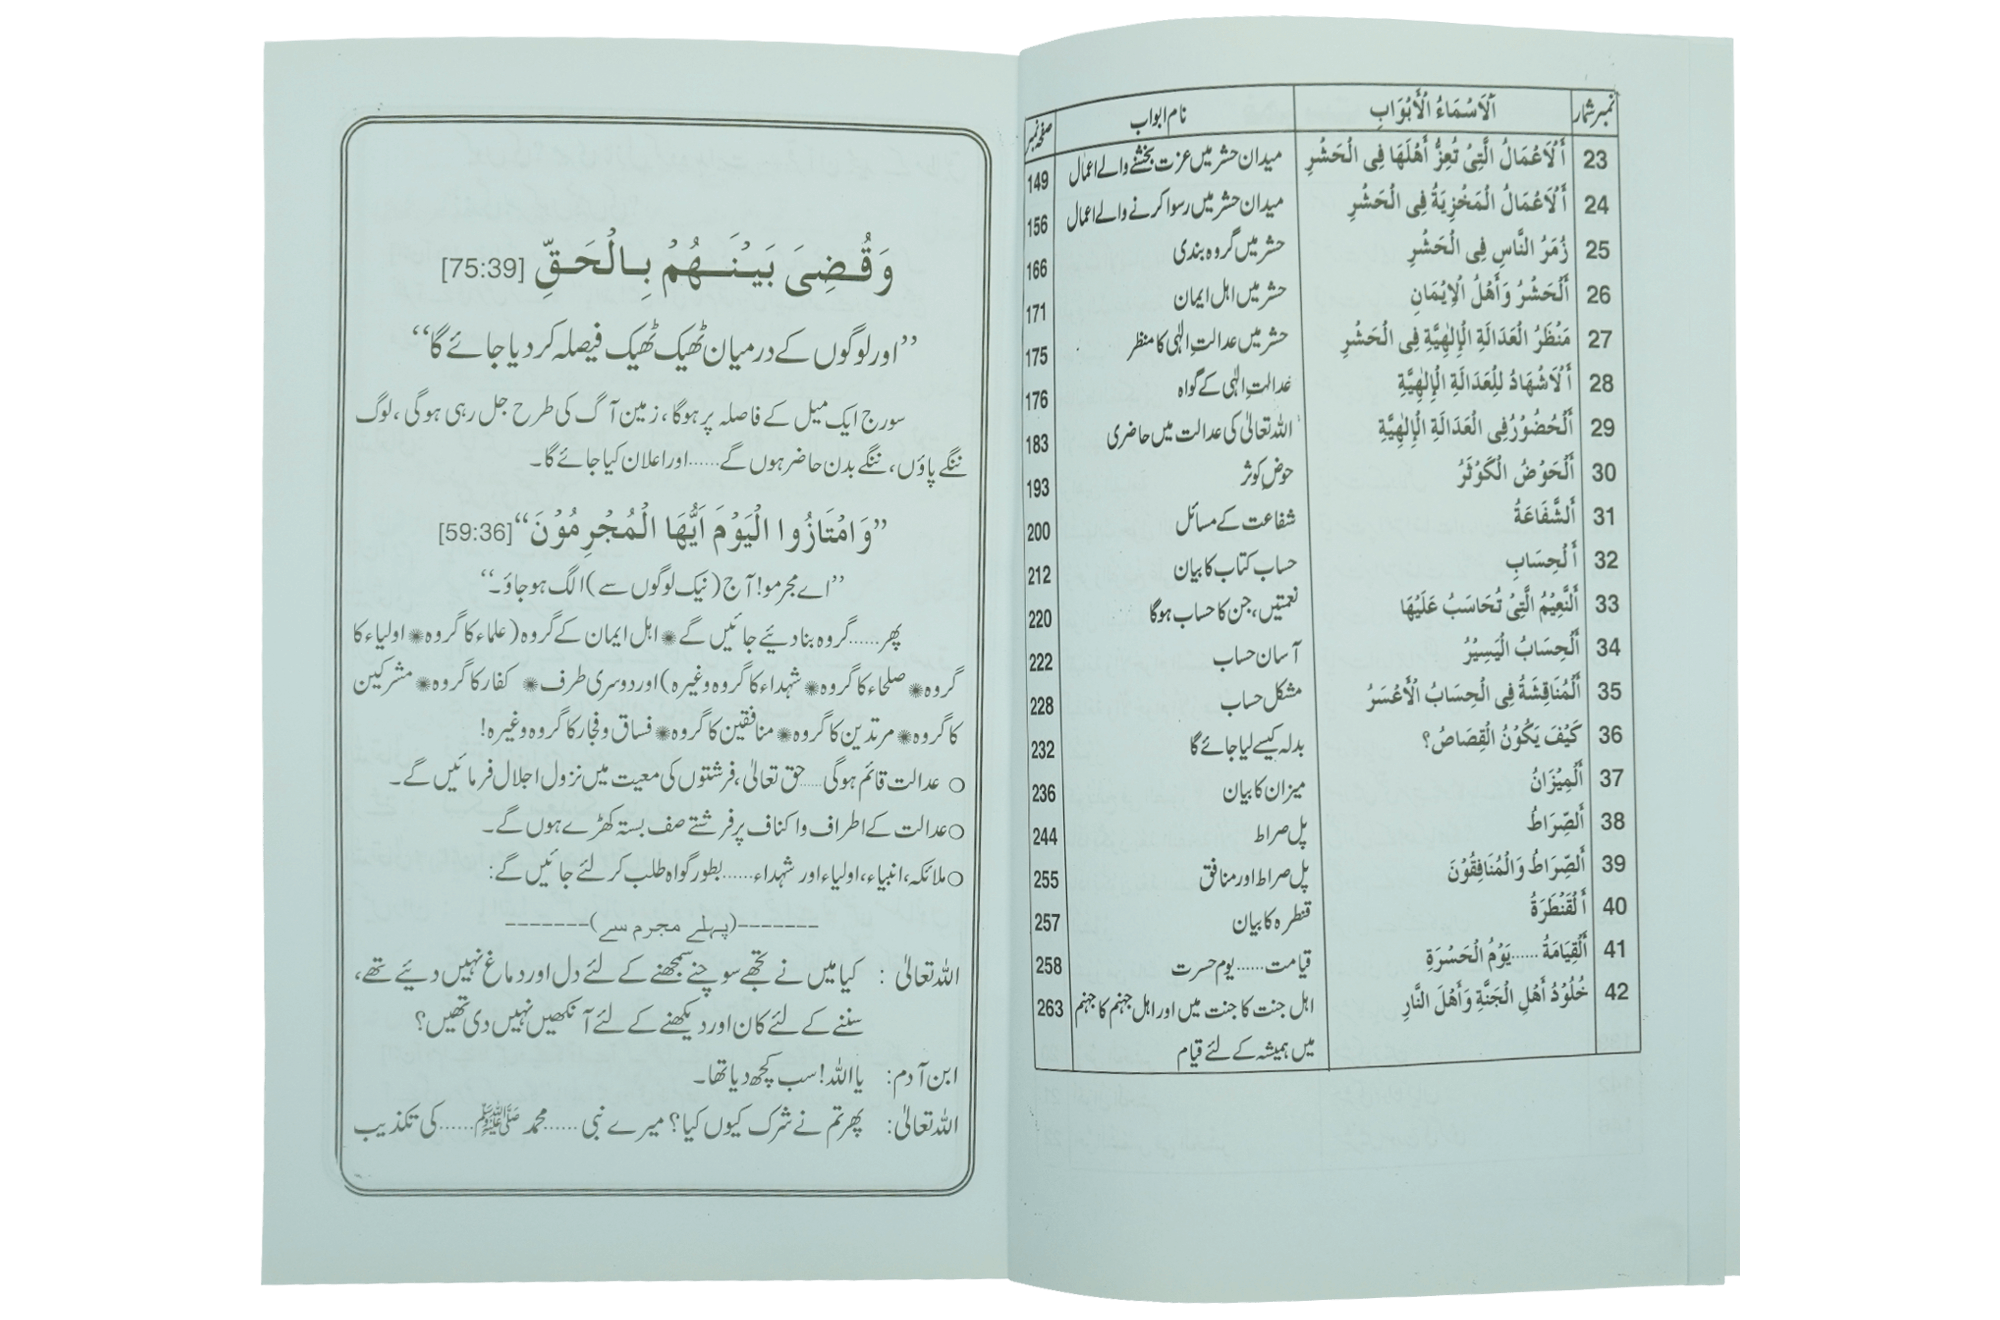 نمبر شمار | اَلْاَسْمَاءُ الْأَبْوَابِ | نام ابواب | صفحہ نمبر
23 | أَلْاَعْمَالُ الَّتِىْ تُعِزُّ أَهْلَهَا فِى الْحَشْرِ | میدان حشر میں عزت بخشنے والے اعمال | 149
24 | أَلْاَعْمَالُ الْمَخْزِيَةُ فِى الْحَشْرِ | میدان حشر میں رسوا کرنے والے اعمال | 156
25 | زُمَرُ النَّاسِ فِى الْحَشْرِ | حشر میں گروہ بندی | 166
26 | أَلْحَشْرُ وَأَهْلُ الْاِيْمَانِ | حشر میں اہل ایمان | 171
27 | مَنْظَرُ الْعَدَالَةِ الْإِلٰهِيَّةِ فِى الْحَشْرِ | حشر میں عدالتِ الٰہی کا منظر | 175
28 | أَلْاَشْهَادُ لِلْعَدَالَةِ الْإِلٰهِيَّةِ | عدالتِ الٰہی کے گواہ | 176
29 | أَلْحُضُوْرُ فِى الْعَدَالَةِ الْإِلٰهِيَّةِ | اللہ تعالیٰ کی عدالت میں حاضری | 183
30 | أَلْحَوْضُ الْكَوْثَرُ | حوضِ کوثر | 193
31 | أَلشَّفَاعَةُ | شفاعت کے مسائل | 200
32 | أَلْحِسَابِ | حساب کتاب کا بیان | 212
33 | أَلنَّعِيْمُ الَّتِىْ تُحَاسَبُ عَلَيْهَا | نعمتیں، جن کا حساب ہوگا | 220
34 | أَلْحِسَابُ الْيَسِيْرُ | آسان حساب | 222
35 | أَلْمُنَاقِشَةُ فِى الْحِسَابُ الْأَعْسَرُ | مشکل حساب | 228
36 | كَيْفَ يَكُوْنُ الْقِصَاصُ؟ | بدلہ کیسے لیا جائے گا | 232
37 | أَلْمِيْزَانُ | میزان کا بیان | 236
38 | أَلصِّرَاطُ | پل صراط | 244
39 | أَلصِّرَاطُ وَالْمُنَافِقُوْنَ | پل صراط اور منافق | 255
40 | أَلْقَنْطَرَةُ | قنطرہ کا بیان | 257
41 | أَلْقِيَامَةُ ...... يَوْمُ الْحَسْرَةِ | قیامت ...... یوم حسرت | 258
42 | خُلُوْدُ أَهْلِ الْجَنَّةِ وَأَهْلَ النَّارِ | اہل جنت کا جنت میں اور اہل جہنم کا جہنم | 263
میں ہمیشہ کے لئے قیام
وَقُضِىَ بَيْنَهُمْ بِالْحَقِّ [75:39]
”اور لوگوں کے درمیان ٹھیک ٹھیک فیصلہ کر دیا جائے گا“
سورج ایک میل کے فاصلہ پر ہوگا، زمین آگ کی طرح جل رہی ہوگی، لوگ
ننگے پاؤں، ننگے بدن حاضر ہوں گے ...... اور اعلان کیا جائے گا۔
”وَامْتَازُوا الْيَوْمَ اَيُّهَا الْمُجْرِمُوْنَ“ [59:36]
”اے مجرمو! آج (نیک لوگوں سے) الگ ہو جاؤ۔“
پھر ...... گروہ بنا دیئے جائیں گے ✺ اہل ایمان کے گروہ (علماء کا گروہ ✺ اولیاء کا
گروہ ✺ صلحاء کا گروہ ✺ شہداء کا گروہ وغیرہ) اور دوسری طرف ✺ کفار کا گروہ ✺ مشرکین
کا گروہ ✺ مرتدین کا گروہ ✺ منافقین کا گروہ ✺ فساق و فجار کا گروہ وغیرہ!
○ عدالت قائم ہوگی ...... حق تعالیٰ، فرشتوں کی معیت میں نزول اجلال فرمائیں گے۔
○ عدالت کے اطراف و اکناف پر فرشتے صف بستہ کھڑے ہوں گے۔
○ ملائکہ، انبیاء، اولیاء اور شہداء ...... بطور گواہ طلب کر لئے جائیں گے:
-------(پہلے مجرم سے)-------
اللہ تعالیٰ: کیا میں نے تجھے سوچنے سمجھنے کے لئے دل اور دماغ نہیں دیئے تھے،
سننے کے لئے کان اور دیکھنے کے لئے آنکھیں نہیں دی تھیں؟
ابن آدم: یا اللہ! سب کچھ دیا تھا۔
اللہ تعالیٰ: پھر تم نے شرک کیوں کیا؟ میرے نبی ...... محمد ﷺ ...... کی تکذیب